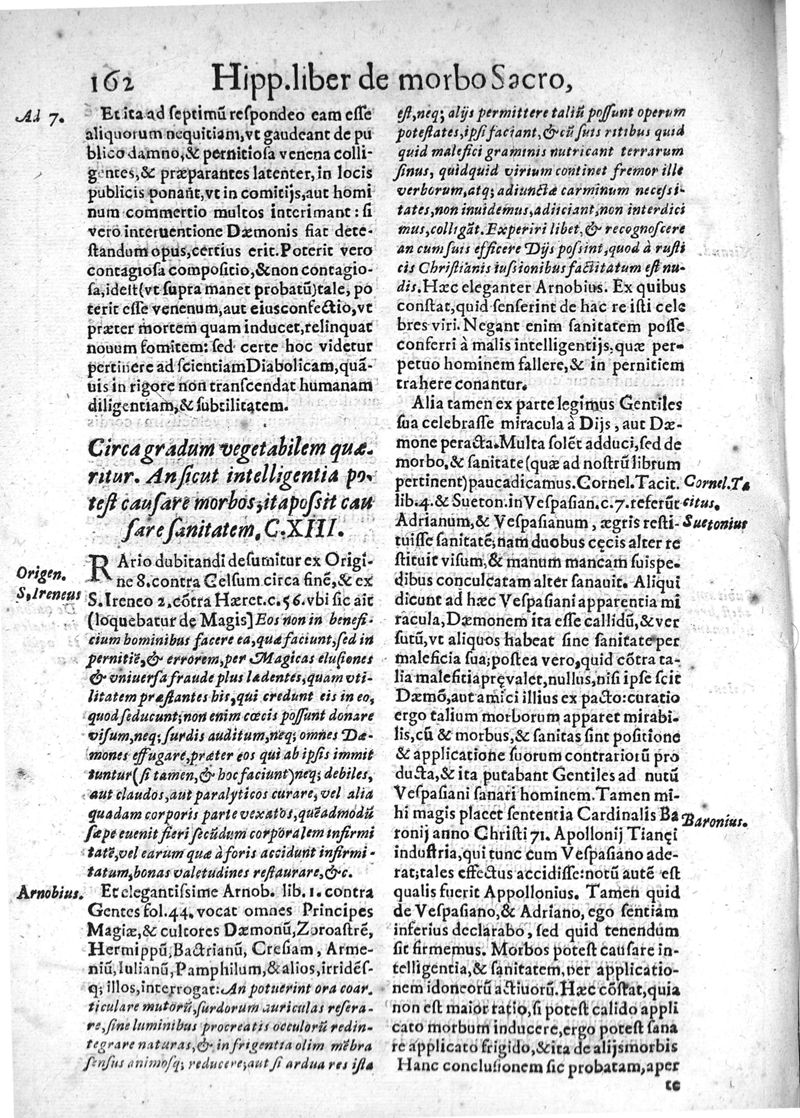 162
Hipp.liber de morbo Sacro,
Ad 7.
Et ita ad septimũ respondeo eam esse
aliquorum nequitiam, vt gaudeant de pu
blico damno, & pernitiosa venena colli-
gentes, & præparantes latenter, in locis
publicis ponãt, vt in comitijs, aut homi
num commertio multos interimant : si
vero interuentione Dæmonis fiat dete-
standum opus, certius erit. Poterit vero
contagiosa compositio, & non contagio-
sa, idest (vt supra manet probatũ) tale, po
terit esse venenum, aut eius confectio, vt
præter mortem quam inducet, relinquat
nouum fomitem: sed certe hoc videtur
pertinere ad scientiam Diabolicam, quã-
uis in rigore non transcendat humanam
diligentiam, & subtilitatem.
Circa gradum vegetabilem quæ-
ritur. An sicut intelligentia po-
test causare morbos; ita possit cau
sare sanitatem. C. XIII.
Origen.
S. Ireneus
RArio dubitandi desumitur ex Origi-
ne 8. contra Celsum circa finẽ, & ex
S. Ireneo 2. cõtra Hæret. c. 56. vbi sic ait
(loquebatur de Magis] Eos non in benefi-
cium hominibus facere ea, quæ faciunt, sed in
pernitiẽ, & errorem, per Magicas elusiones
& vniuersa fraude plus lædentes, quam vti-
litatem præstantes his, qui credunt eis in eo,
quod seducunt; non enim cœcis possunt donare
visum, neq; surdis auditum, neq; omnes Dæ-
mones effugare, præter eos qui ab ipsis immit
tuntur (si tamen, & hoc faciunt) neq; debiles,
aut claudos, aut paralyticos curare, vel alia
quadam corporis parte vexatos, quẽadmodũ
sæpe euenit fieri secũdum corporalem infirmi
tatẽ, vel earum quæ à foris accidunt infirmi-
tatum, bonas valetudines restaurare, &c.
Arnobius.
Et elegantissime Arnob. lib. 1. contra
Gentes fol. 44. vocat omnes Principes
Magiæ, & cultores Dæmonũ, Zoroastrẽ,
Hermippũ, Bactrianũ, Cresiam, Arme-
niũ, Iulianũ, Pamphilum, & alios, irridẽs-
q; illos, interrogat: An potuerint ora coar-
ticulare mutorũ, surdorum auriculas resera-
re, sine luminibus procreatis occulorũ redin-
tegrare naturas, & in frigentia olim mẽbra
sensus animosq; reducere; aut si ardua res ista
est, neq; alijs permittere taliũ possunt operum
potestates, ipsi faciant, & cũ suis ritibus quid
quid malefici graminis nutricant terrarum
sinus, quidquid virium continet fremor ille
verborum, atq; adiunctæ carminum necessi-
tates, non inuidemus, adijciant, non interdici
mus, colligãt. Experiri libet, & recognoscere
an cum suis efficere Dijs possint, quod à rusti
cis Christianis iussionibus factitatum est nu-
dis. Hæc eleganter Arnobius. Ex quibus
constat, quid senserint de hac re isti cele
bres viri. Negant enim sanitatem posse
conferri à malis intelligentijs, quæ per-
petuo hominem fallere, & in pernitiem
trahere conantur.
Alia tamen ex parte legimus Gentiles
sua celebrasse miracula à Dijs, aut Dæ-
mone peracta. Multa solẽt adduci, sed de
morbo, & sanitate (quæ ad nostrũ librum
pertinent) pauca dicamus. Cornel. Tacit.
Cornel. Ta
lib. 4. & Sueton. in Vespasian. c. 7. referũt
citus.
Adrianum, & Vespasianum, ægris resti-
Suetonius
tuisse sanitatẽ; nam duobus cęcis alter re
stituit visum, & manum mancam suispe-
dibus conculcatam alter sanauit. Aliqui
dicunt ad hæc Vespasiani apparentia mi
racula, Dæmonem ita esse callidũ, & ver
sutũ, vt aliquos habeat sine sanitate per
maleficia sua; postea vero, quid cõtra ta-
lia maleficia pręvalet, nullus, nisi ipse scit
Dæmõ, aut amici illius ex pacto: curatio
ergo talium morborum apparet mirabi-
lis, cũ & morbus, & sanitas sint positione
& applicatione suorum contrariorũ pro
ducta, & ita putabant Gentiles ad nutũ
Vespasiani sanari hominem. Tamen mi-
hi magis placet sententia Cardinalis Ba
Baronius.
ronij anno Christi 71. Apollonij Tianęi
industria, qui tunc cum Vespasiano ade-
rat; tales effectus accidisse: notũ autẽ est
qualis fuerit Appollonius. Tamen quid
de Vespasiano, & Adriano, ego sentiam
inferius declarabo, sed quid tenendum
sit firmemus. Morbos potest causare in-
telligentia, & sanitatem, per applicatio-
nem idoneorũ actiuorũ. Hæc cõstat, quia
non est maior ratio, si potest calido appli
cato morbum inducere, ergo potest sana
re applicato frigido, & ita de alijs morbis
Hanc conclusionem sic probatam, aper
te